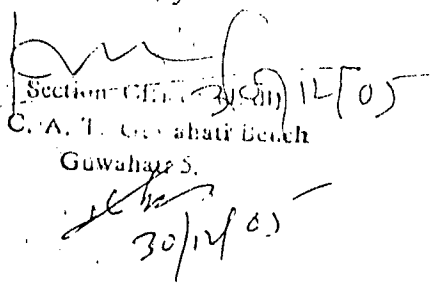 Section Offi
30/12/05
C. A. T. Guwahati Bench
Guwahati-5.
30/12/05